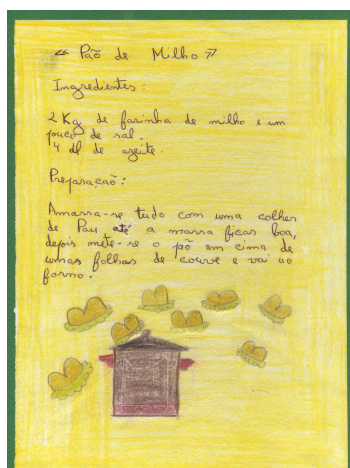 « Pão de Milho »
Ingredientes:
2 Kg de farinha de milho e um
pouco de sal.
4 dl de azeite.
Preparação:
Amassa-se tudo com uma colher
de Pau até a massa ficar boa,
depois mete-se o põ em cima de
umas folhas de couve e vai ao
forno.